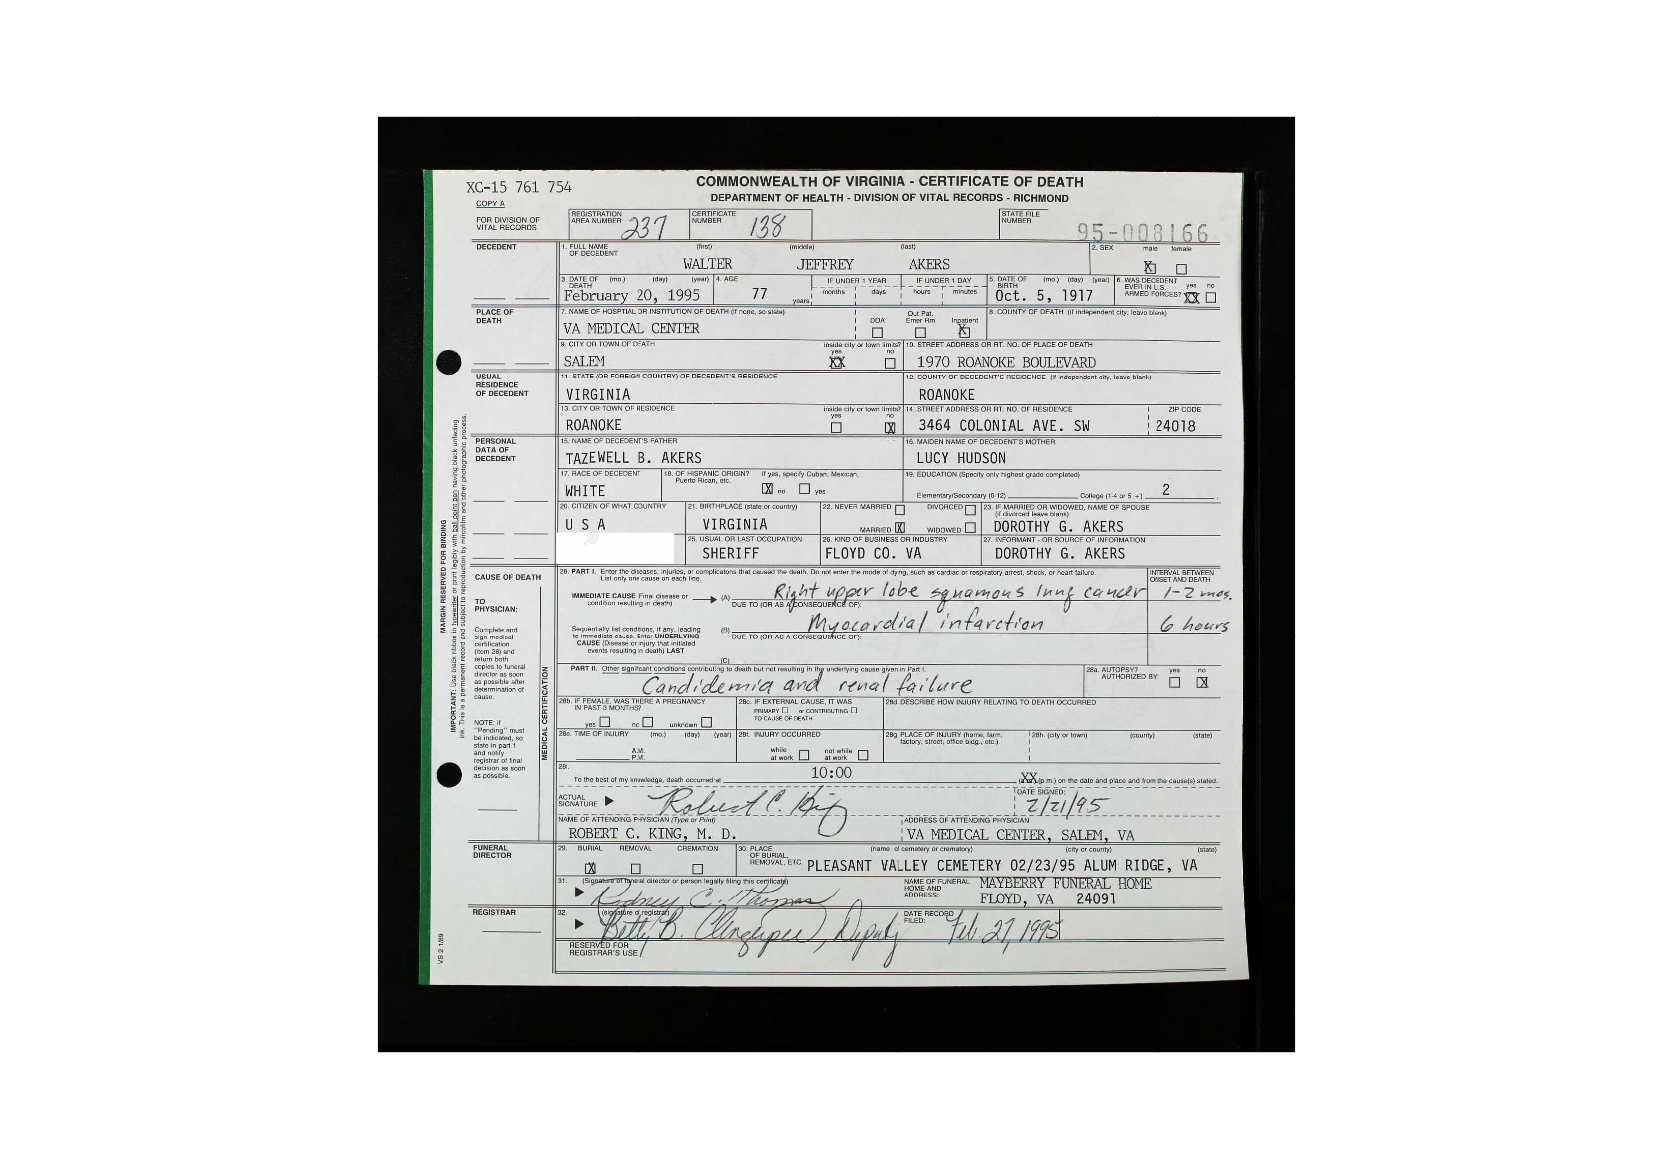 XC-15 761 754
COMMONWEALTH OF VIRGINIA - CERTIFICATE OF DEATH
COPY A
DEPARTMENT OF HEALTH - DIVISION OF VITAL RECORDS - RICHMOND
FOR DIVISION OF VITAL RECORDS
REGISTRATION AREA NUMBER 237
CERTIFICATE NUMBER 138
STATE FILE NUMBER 95-008166
DECEDENT
1. FULL NAME OF DECEDENT (first) (middle) (last)
WALTER JEFFREY AKERS
2. SEX male female
X
3. DATE OF DEATH (mo.) (day) (year)
February 20, 1995
4. AGE
77 years
IF UNDER 1 YEAR months days
IF UNDER 1 DAY hours minutes
5. DATE OF BIRTH (mo.) (day) (year)
Oct. 5, 1917
6. WAS DECEDENT EVER IN U.S. ARMED FORCES? yes no
XX
PLACE OF DEATH
7. NAME OF HOSPTIAL OR INSTITUTION OF DEATH (if none, so state)
VA MEDICAL CENTER
DOA Out Pat. Emer Rm Inpatient
X
8. COUNTY OF DEATH (if independent city, leave blank)
9. CITY OR TOWN OF DEATH
SALEM
inside city or town limits? yes no
XX
10. STREET ADDRESS OR RT. NO. OF PLACE OF DEATH
1970 ROANOKE BOULEVARD
USUAL RESIDENCE OF DECEDENT
11. STATE (OR FOREIGN COUNTRY) OF DECEDENT'S RESIDENCE
VIRGINIA
12. COUNTY OF DECEDENT'S RESIDENCE (if independent city, leave blank)
ROANOKE
13. CITY OR TOWN OF RESIDENCE
ROANOKE
inside city or town limits? yes no
X
14. STREET ADDRESS OR RT. NO. OF RESIDENCE
3464 COLONIAL AVE. SW
ZIP CODE
24018
PERSONAL DATA OF DECEDENT
15. NAME OF DECEDENT'S FATHER
TAZEWELL B. AKERS
16. MAIDEN NAME OF DECEDENT'S MOTHER
LUCY HUDSON
17. RACE OF DECEDENT
WHITE
18. OF HISPANIC ORIGIN? If yes, specify Cuban, Mexican, Puerto Rican, etc.
X no yes
19. EDUCATION (Specify only highest grade completed)
Elementary/Secondary (0-12) College (1-4 or 5 +) 2
20. CITIZEN OF WHAT COUNTRY
U S A
21. BIRTHPLACE (state or country)
VIRGINIA
22. NEVER MARRIED DIVORCED
MARRIED X WIDOWED
23. IF MARRIED OR WIDOWED, NAME OF SPOUSE (if divorced leave blank)
DOROTHY G. AKERS
25. USUAL OR LAST OCCUPATION
SHERIFF
26. KIND OF BUSINESS OR INDUSTRY
FLOYD CO. VA
27. INFORMANT - OR SOURCE OF INFORMATION
DOROTHY G. AKERS
CAUSE OF DEATH
TO PHYSICIAN:
Complete and sign medical certification (item 28) and return both copies to funeral director as soon as possible after determination of cause.
NOTE: If "Pending" must be indicated, so state in part 1 and notify registrar of final decision as soon as possible.
MEDICAL CERTIFICATION
28. PART I. Enter the diseases, injuries, or complications that caused the death. Do not enter the mode of dying, such as cardiac or respiratory arrest, shock, or heart failure.
List only one cause on each line.
INTERVAL BETWEEN ONSET AND DEATH
IMMEDIATE CAUSE Final disease or condition resulting in death) (A) Right upper lobe squamous lung cancer 1-2 mos.
DUE TO (OR AS A CONSEQUENCE OF):
Sequentially list conditions, if any, leading to immediate cause. Enter UNDERLYING CAUSE (Disease or injury that initiated events resulting in death) LAST
(B) Myocardial infarction 6 hours
DUE TO (OR AS A CONCEQUENCE OF):
(C)
PART II. Other significant conditions contributing to death but not resulting in the underlying cause given in Part I.
Candidemia and renal failure
28a. AUTOPSY? AUTHORIZED BY: yes no
X
28b. IF FEMALE, WAS THERE A PREGNANCY IN PAST 3 MONTHS?
yes no unknown
28c. IF EXTERNAL CAUSE, IT WAS
PRIMARY or CONTRIBUTING
TO CAUSE OF DEATH
28d DESCRIBE HOW INJURY RELATING TO DEATH OCCURRED
28e. TIME OF INJURY (mo.) (day) (year)
A.M.
P.M.
28f. INJURY OCCURRED
while at work not while at work
28g PLACE OF INJURY (home, farm, factory, street, office bldg., etc.)
28h. (city or town) (county) (state)
28i.
To the best of my knowledge, death occurred at 10:00 (XX)(p.m.) on the date and place and from the cause(s) stated.
ACTUAL SIGNATURE Robert C. King
DATE SIGNED:
2/21/95
NAME OF ATTENDING PHYSICIAN (Type or Print)
ROBERT C. KING, M. D.
ADDRESS OF ATTENDING PHYSICIAN
VA MEDICAL CENTER, SALEM, VA
FUNERAL DIRECTOR
29. BURIAL REMOVAL CREMATION
X
30. PLACE OF BURIAL, REMOVAL, ETC. (name of cemetery or crematory) (city or county) (state)
PLEASANT VALLEY CEMETERY 02/23/95 ALUM RIDGE, VA
31. (Signature of funeral director or person legally filing this certificate)
Rodney C. Thomas
NAME OF FUNERAL HOME AND ADDRESS:
MAYBERRY FUNERAL HOME
FLOYD, VA 24091
REGISTRAR
32. (signature of registrar)
Betty B. Deputy
DATE RECORD FILED: Feb. 27, 1995
RESERVED FOR REGISTRAR'S USE
VS 2 1/89
MARGIN RESERVED FOR BINDING
IMPORTANT: Use black ribbon in typewriter or print legibly with ball point pen having black unfading
ink. This is a permanent record and subject to reproduction by microfilm and other photographic process.